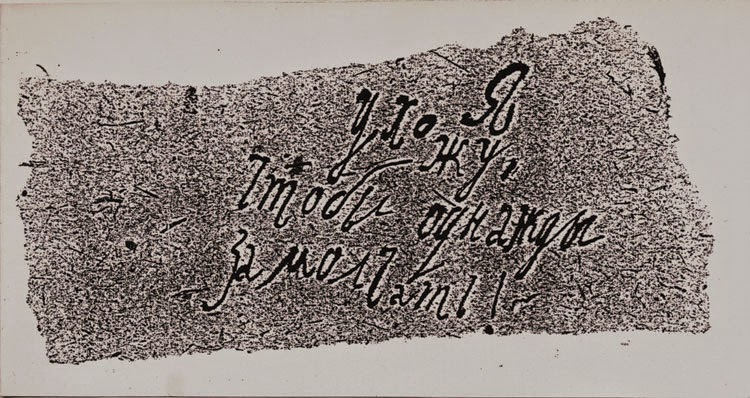 Я
ухо-
жу,
чтобы однажды
замолчать!